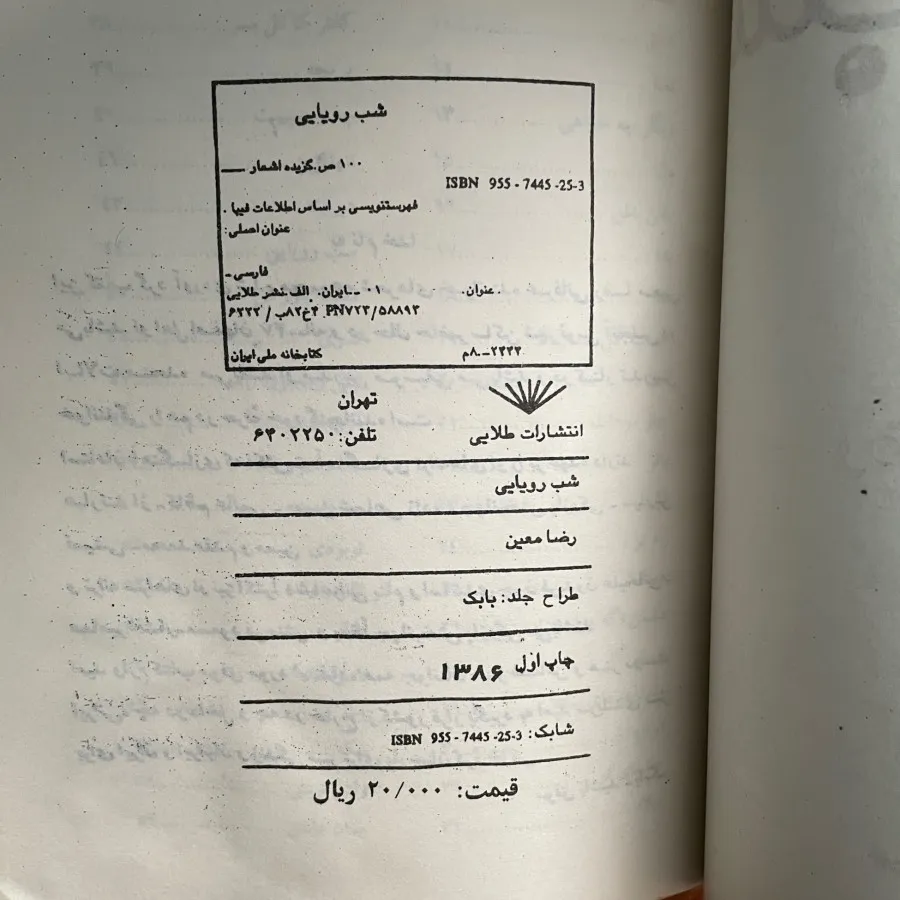 شب رویایی
۱۰۰ ص.گزیده اشعار ــــ
ISBN 955 - 7445 -25-3
فهرستنویسی بر اساس اطلاعات فیپا .
عنوان اصلی:
فارسی ـ
۰۱ -ـایران. الف.نشر طلایی . عنوان.
۶۲۲۲ / ب۸۲خ۴ PN۷۲۳/۵۸۸۹۳
کتابخانه ملی ایران ۲۴۳۳-ـ۸۰م
تهران
انتشارات طلایی تلفن: ۶۴۰۲۲۵۰
شب رویایی
رضا معین
طراح جلد: بابک
چاپ اول ۱۳۸۶
شابک: ISBN 955 - 7445 -25-3
قیمت: ۲۰/۰۰۰ ریال